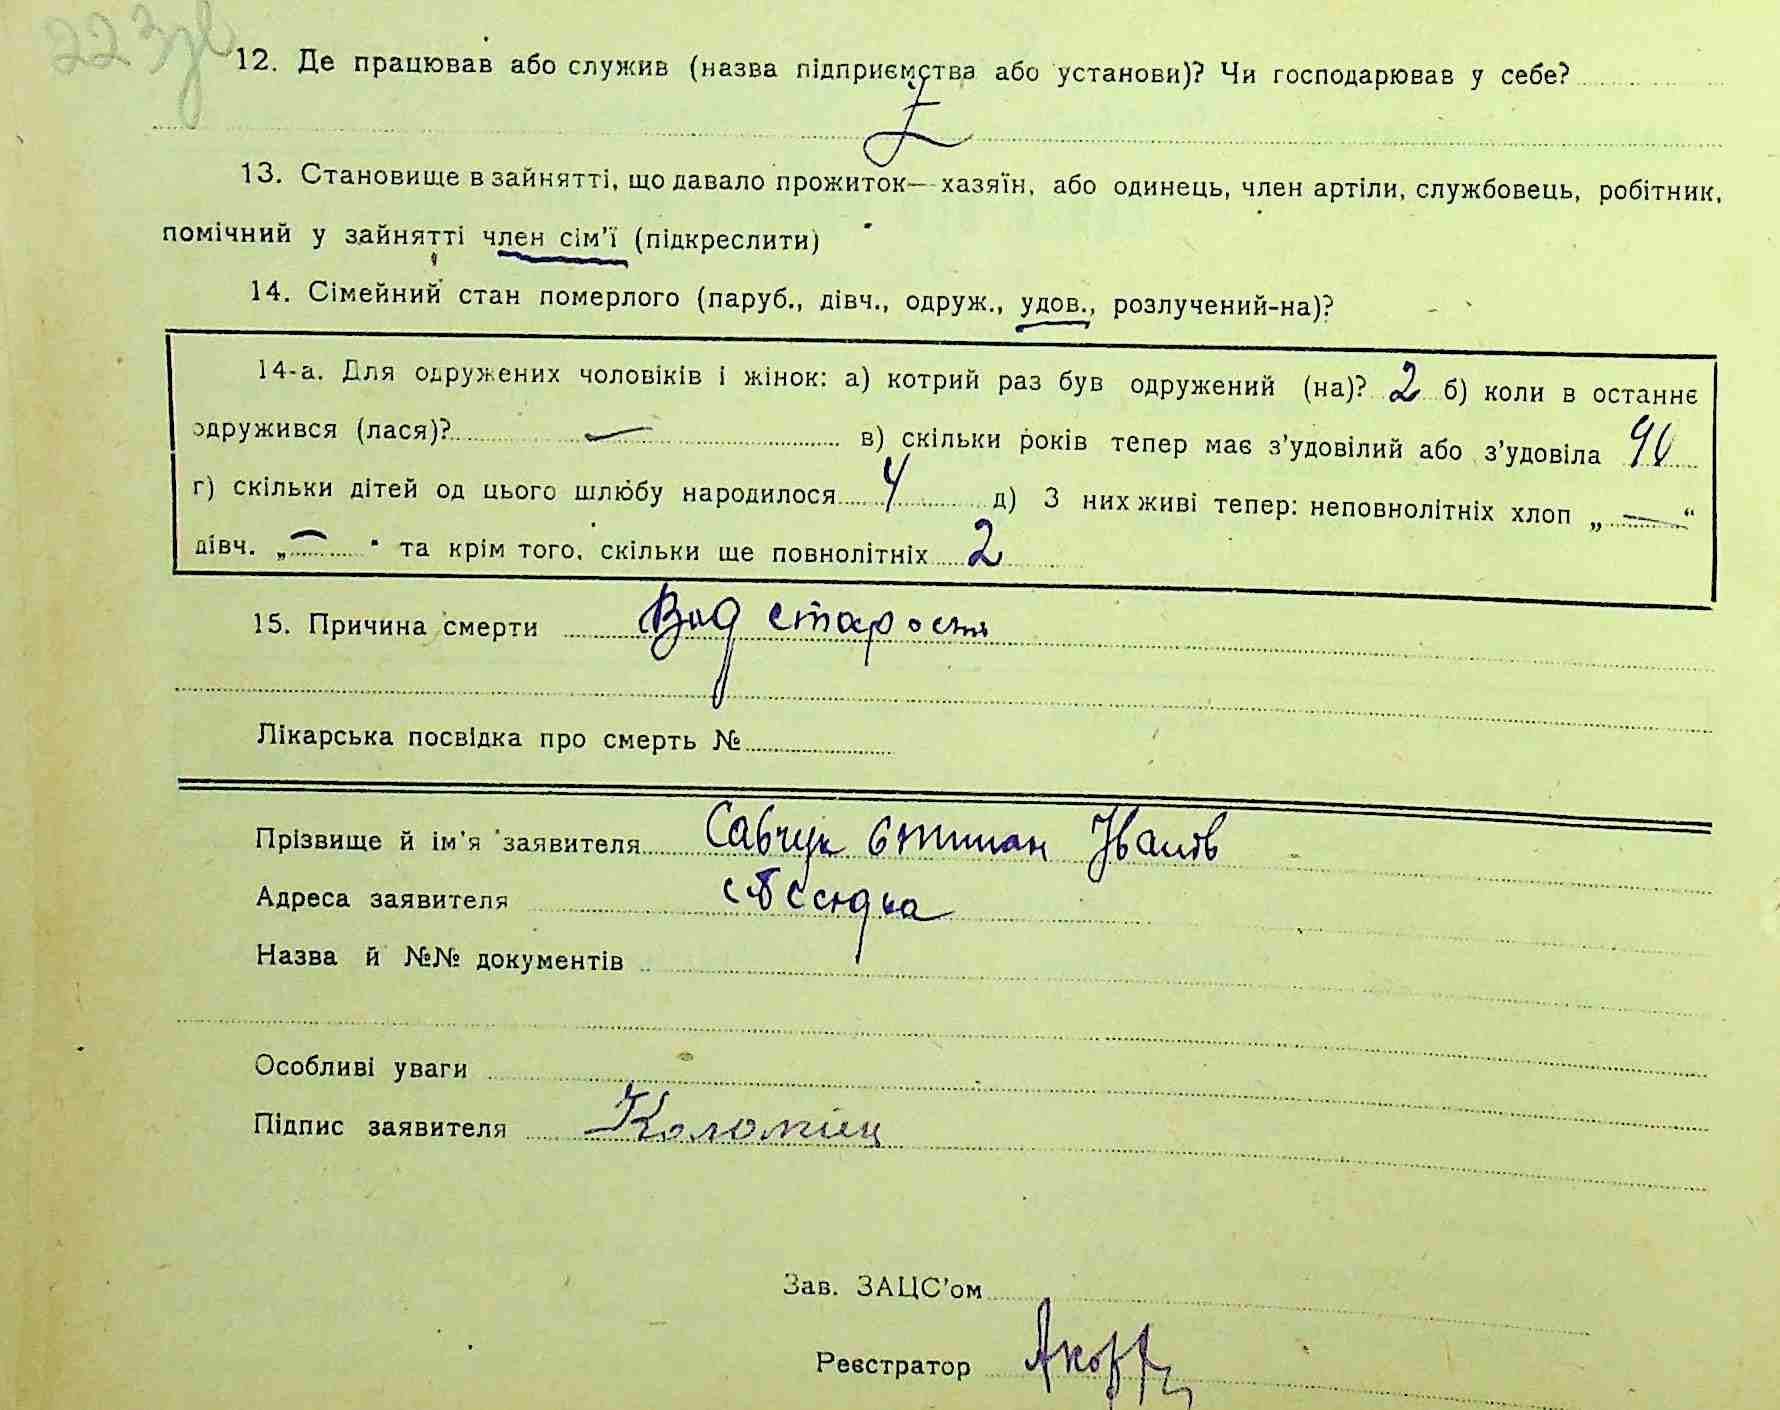 223зв
12. Де працював або служив (назва підприємства або установи)? Чи господарював у себе?
13. Становище в зайнятті, що давало прожиток— хазяїн, або одинець, член артіли, службовець, робітник,
помічний у зайнятті член сім'ї (підкреслити)
14. Сімейний стан померлого (паруб., дівч., одруж., удов., розлучений-на)?
14-а. Для одружених чоловіків і жінок: а) котрий раз був одружений (на)? 2 б) коли в останнє
одружився (лася)? — в) скільки років тепер має з'удовілий або з'удовіла
г) скільки дітей од цього шлюбу народилося 4 д) З них живі тепер: неповнолітніх хлоп „—“
дівч. „—“ та крім того, скільки ще повнолітніх 2
15. Причина смерти Вид старости
Лікарська посвідка про смерть №
Прізвище й ім'я заявителя Савчук Іванов
Адреса заявителя
Назва й №№ документів
Особливі уваги
Підпис заявителя Коломіец
Зав. ЗАЦС'ом
Реєстратор